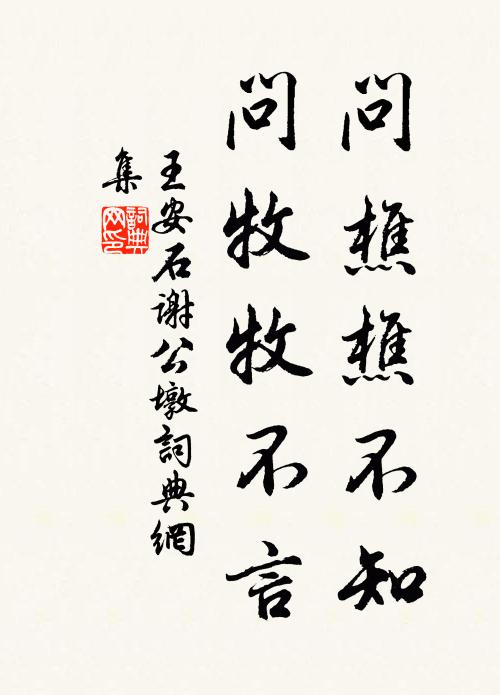 問樵樵不知
問牧牧不言
王安石謝公墩詞典網
集
詞典
网印